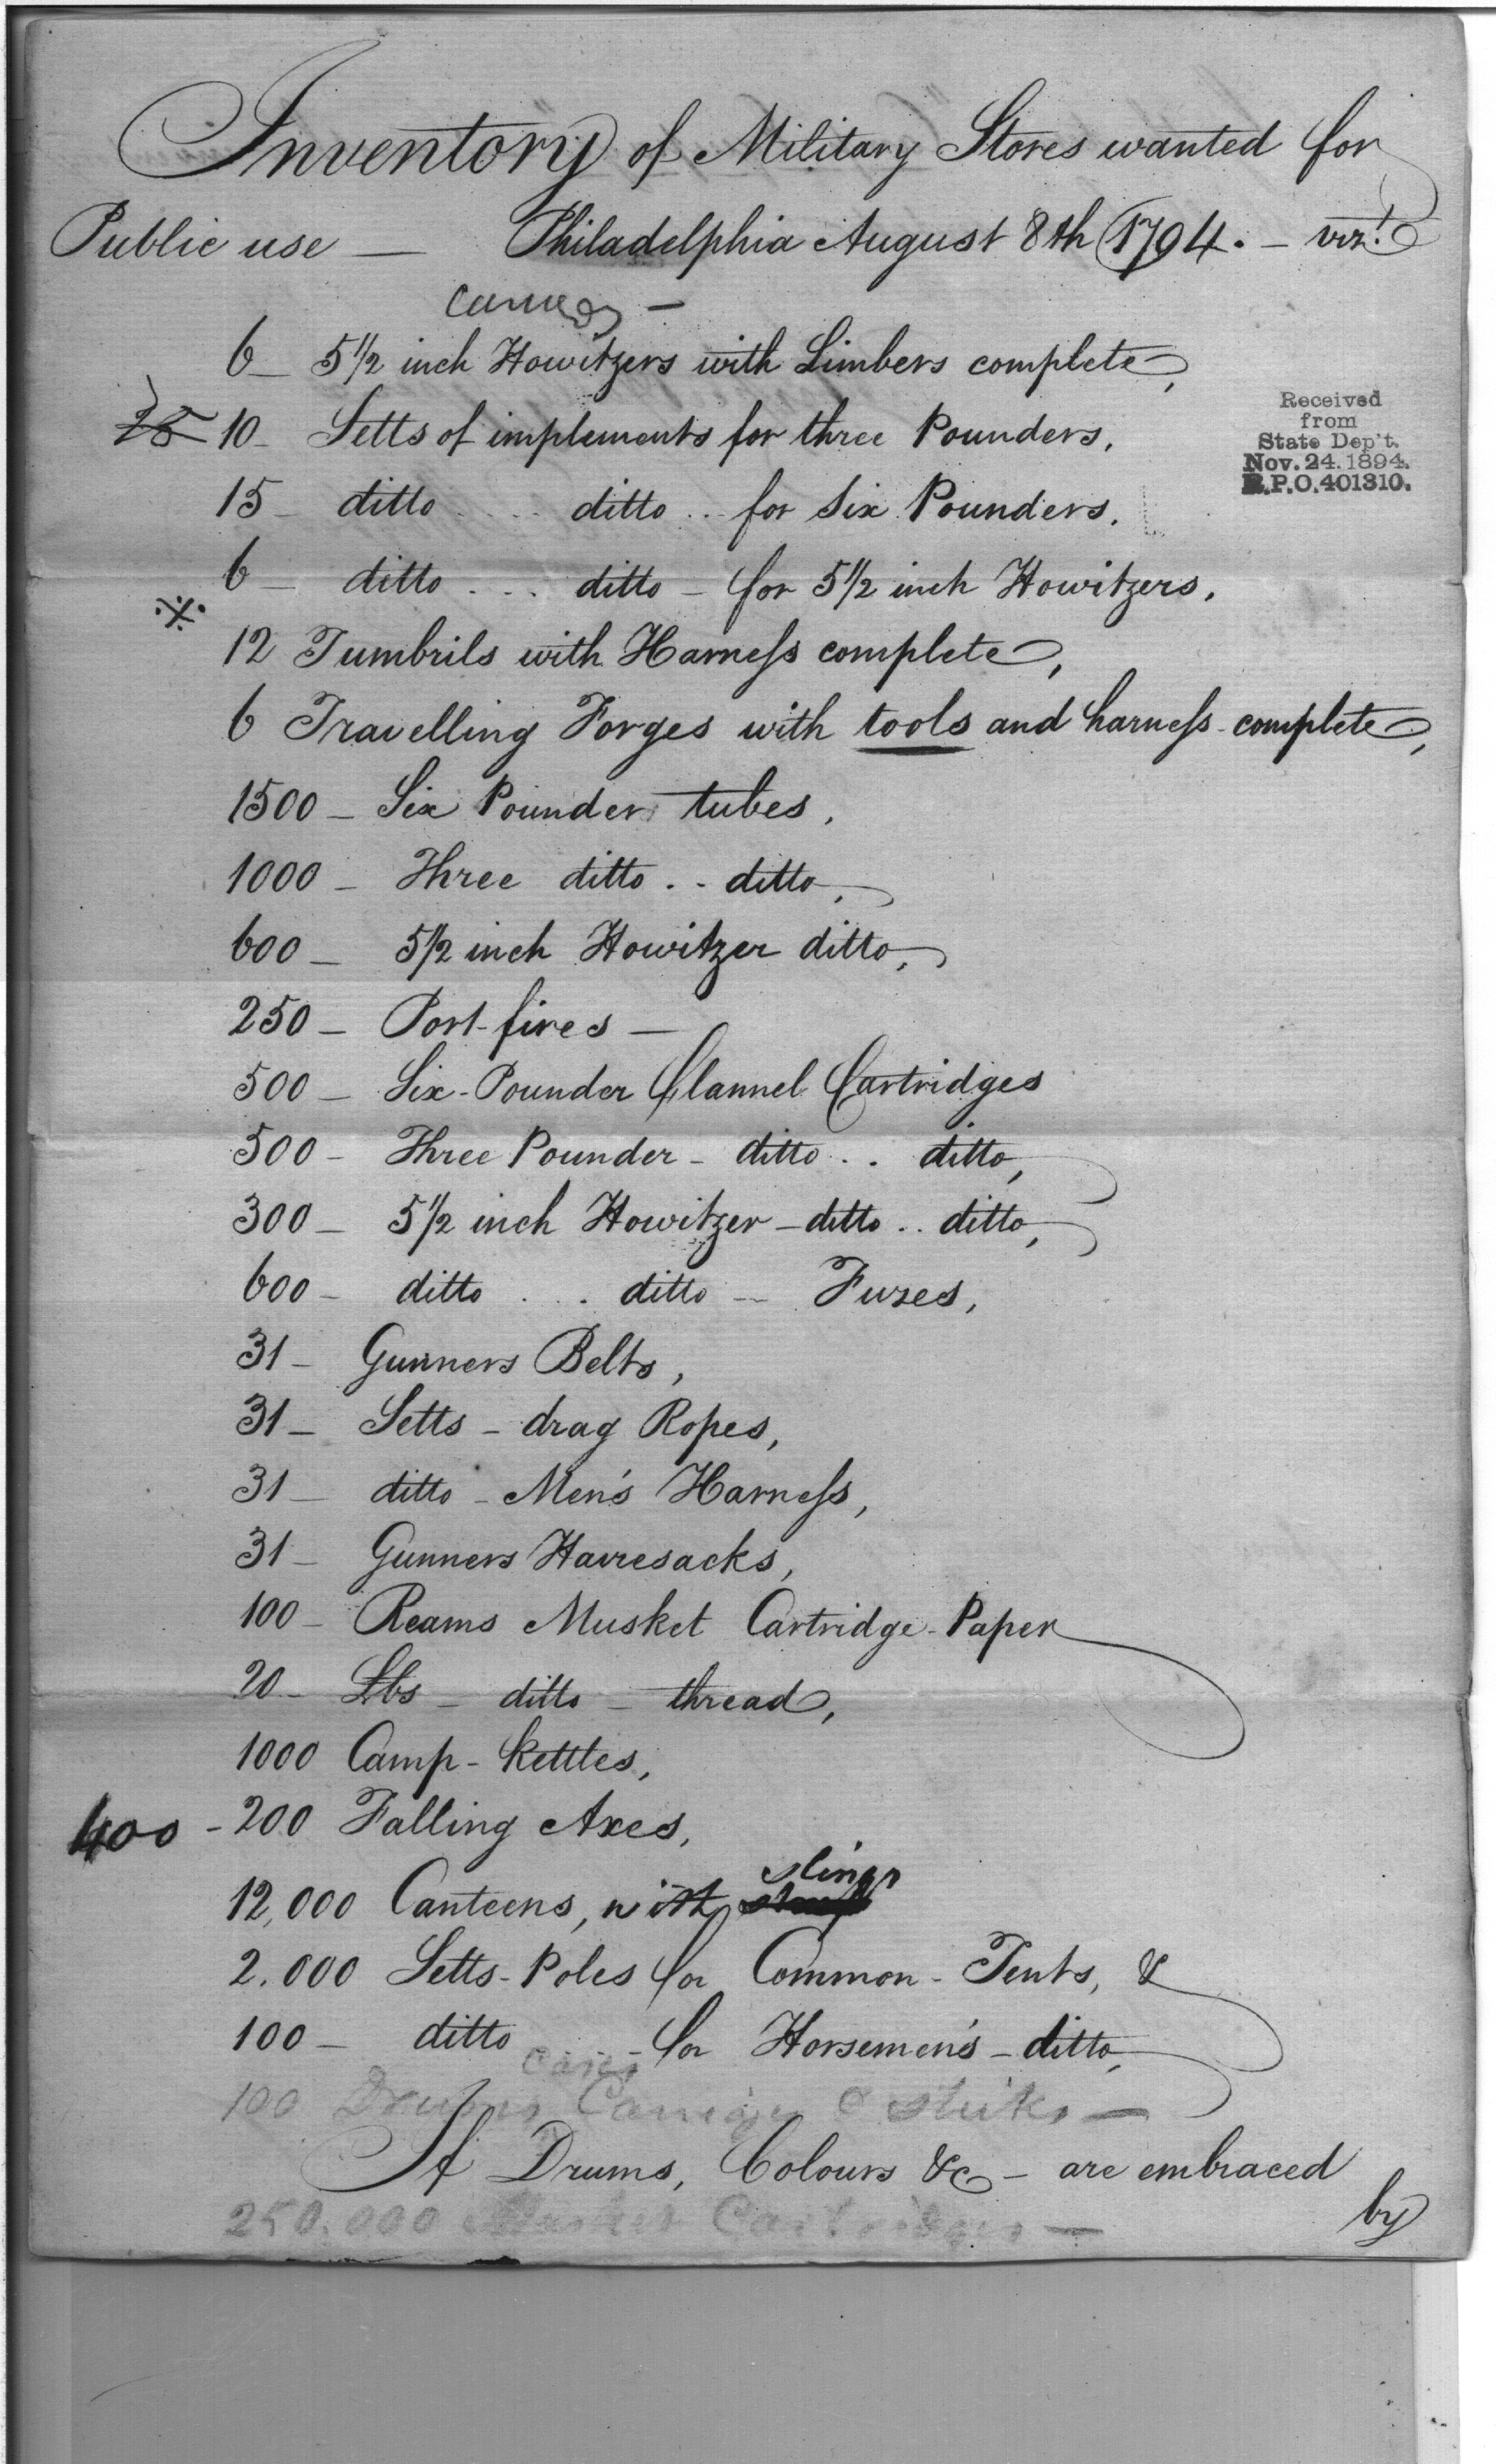 Inventory of Military Stores wanted for
Public use — Philadelphia August 8th 1794. – viz.
6 – 5 1/2 inch Howitzers with Limbers complete,
25 10 – Setts of implements for three Pounders.
15 – ditto .... ditto .. for Six Pounders.
6 – ditto ... ditto – for 5 1/2 inch Howitzers.
12 Tumbrils with Harness complete,
6 Travelling Forges with tools and harness complete,
1500 – Six Pounder tubes,
1000 – Three ditto .. ditto,
600 – 5 1/2 inch Howitzer ditto,
250 – Port-fires —
500 – Six-Pounder Flannel Cartridges
500 – Three Pounder – ditto .. ditto,
300 – 5 1/2 inch Howitzer – ditto .. ditto,
600 – ditto .. ditto – Fuzes,
31 – Gunners Belts,
31 – Setts – drag Ropes,
31 – ditto – Men's Harness,
31 – Gunners Haversacks,
100 – Reams Musket Cartridge-Paper
20 – Lbs – ditto – thread,
1000 Camp-kettles,
400 – 200 Falling Axes,
slings
12,000 Canteens, with
2.000 Setts-Poles for Common-Tents, &
100 – ditto – for Horsemen's – ditto,
Cases
100 Drums Carriages & sticks —
If Drums, Colours &c – are embraced
by
250.000 Musket Cartridges —
Received
from
State Dep't.
Nov. 24. 1894.
R.P.O. 401310.